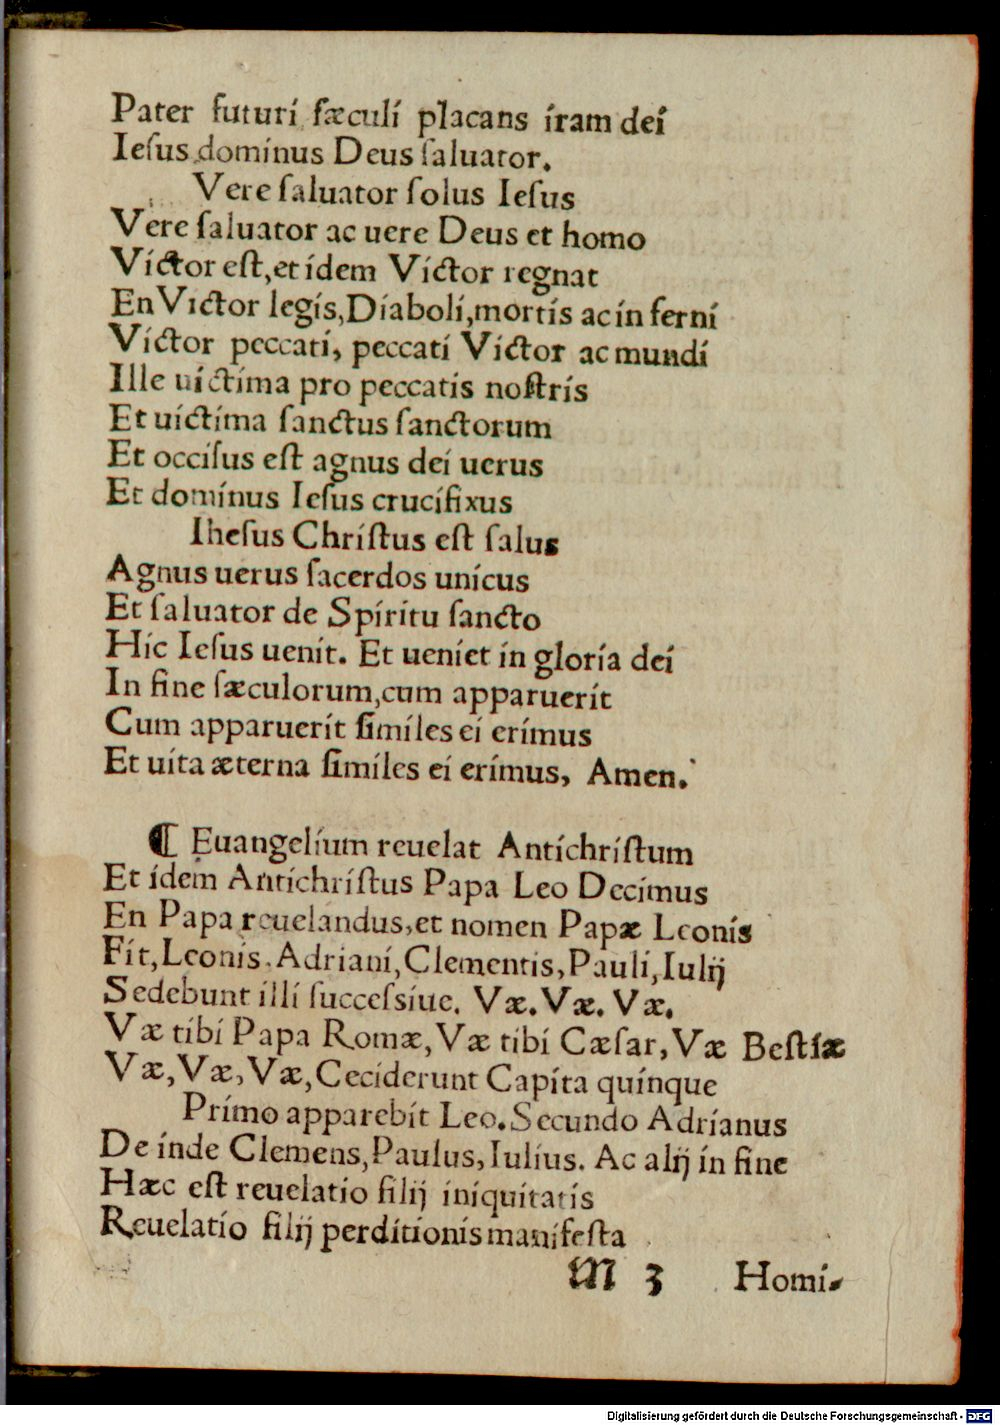 Pater futuri sæculi placans iram dei
Iesus dominus Deus saluator.
Vere saluator solus Iesus
Vere saluator ac uere Deus et homo
Victor est, et idem Victor regnat
En Victor legis, Diaboli, mortis ac in ferni
Victor peccati, peccati Victor ac mundi
Ille uictima pro peccatis nostris
Et uictima sanctus sanctorum
Et occisus est agnus dei uerus
Et dominus Iesus crucifixus
Ihesus Christus est salus
Agnus uerus sacerdos unicus
Et saluator de Spiritu sancto
Hic Iesus uenit. Et ueniet in gloria dei
In fine sæculorum, cum apparuerit
Cum apparuerit similes ei erimus
Et uita æterna similes ei erimus, Amen.
¶ Euangelium reuelat Antichristum
Et idem Antichristus Papa Leo Decimus
En Papa reuelandus, et nomen Papæ Leonis
Fit, Leonis. Adriani, Clementis, Pauli, Iulij
Sedebunt illi successiue. Væ. Væ. Væ.
Væ tibi Papa Romæ, Væ tibi Cæsar, Væ Bestiæ
Væ, Væ, Væ, Ceciderunt Capita quinque
Primo apparebit Leo. Secundo Adrianus
De inde Clemens, Paulus, Iulius. Ac alij in fine
Hæc est reuelatio filij iniquitatis
Reuelatio filij perditionis manifesta
M 3 Homi-
Digitalisierung gefördert durch die Deutsche Forschungsgemeinschaft - DFG